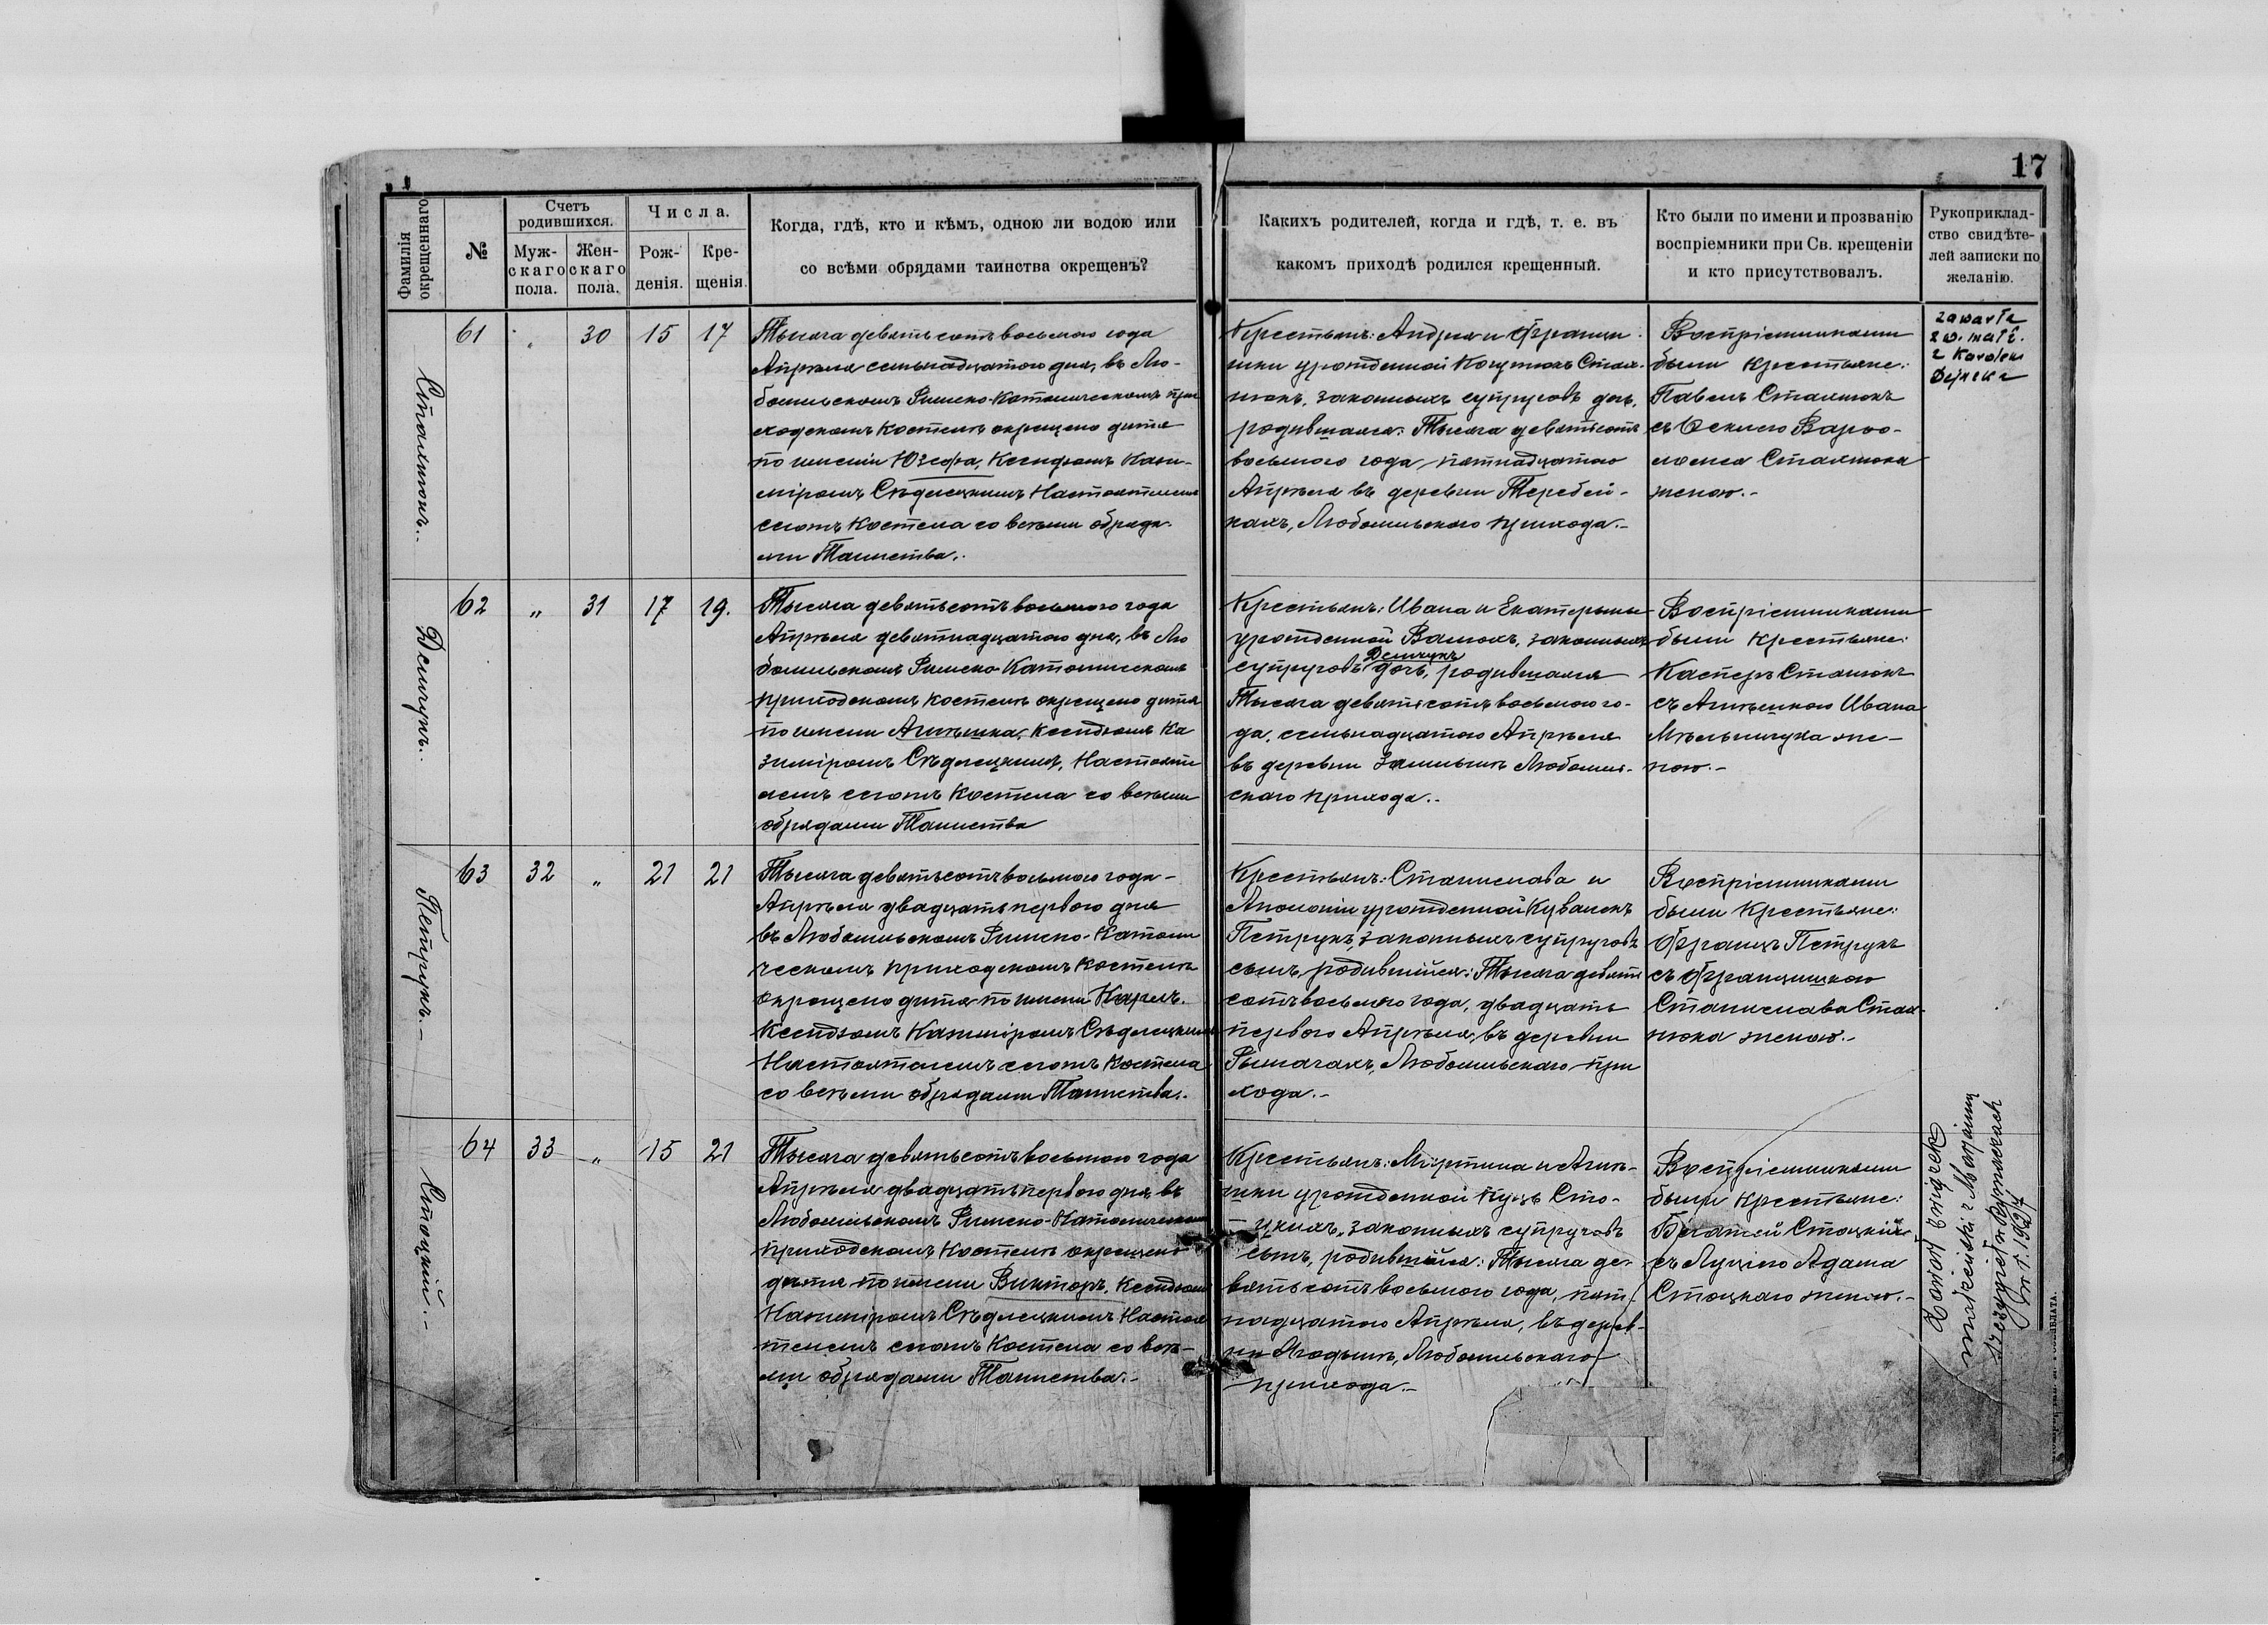 17
Фамилія
окрещеннаго
№
Счетъ
родившихся.
Муж-
скаго
пола.
Жен-
скаго
пола.
Числа.
Рож-
денія.
Кре-
щенія.
Когда, гдѣ, кто и кѣмъ, одною ли водою или
со всѣми обрядами таинства окрещенъ?
Какихъ родителей, когда и гдѣ, т. е. въ
какомъ приходѣ родился крещенный.
Кто были по имени и прозванію
воспріемники при Св. крещеніи
и кто присутствовалъ.
Рукоприклад-
ство свидѣте-
лей записки по
желанію.
61 " 30 15 17
Тысяча девятьсотъ восьмого года
Апрѣля семьнадцатого дня, въ Лю-
бомльскомъ Римско-Католическомъ при
ходскомъ Костелѣ окрещено дитя
по имени Юзефа, Ксендзомъ Кази-
міромъ Сѣдлецкимъ Настоятелемъ
сего Костела со всѣми обряда-
ми Таинства.
Крестьянъ: Андрея и Францы-
шки урожденной
законныхъ супруговъ дочь,
родившаяся: Тысяча девятьсотъ
восьмого года пятнадцатого
Апрѣля въ деревни Теребей-
кахъ, Любомльского прихода.-
Воспріемниками
были Крестьяне:
Павелъ
жено.-
zawarła
zw. małż.
z Karolem
62 " 31 17 19.
Демчукъ.
Тысяча девятьсотъ восьмого года
Апрѣля девятнадцатого дня, въ Лю
бомльскомъ Римско Католическомъ
приходскомъ Костелѣ окрещено дитя
по имени Агнѣшка, Ксендзомъ Ка
зиміромъ Сѣдлецкимъ, Настояте
лемъ сего Костела со всѣми
обрядами Таинства
Крестьянъ: Ивана и Екатерины
урожденной законныхъ
супруговъ Демчукъ дочь, родившаяся
Тысяча девятьсотъ восьмого го-
да, семьнадцатого Апрѣля
въ деревни Любомль-
ского прихода.-
Воспріемниками
были Крестьяне:
Касперъ
съ Агнѣшкою Ивана
Мѣльничука же-
ною.-
63 32 " 21 21
Петрукъ.-
Тысяча девятьсотъ восьмого года-
Апрѣля двадцать первого дня
въ Любомльскомъ Римско-Католи
ческомъ приходскомъ Костелѣ
окрещено дитя по имени Кароль.
Ксендзомъ Казиміромъ Сѣдлецкимъ
Настоятелемъ сего Костела
со всѣми обрядами Таинства.
Крестьянъ: Станислава и
Аполоніи урожденной
Петрукъ, законныхъ супруговъ
сынъ, родившійся: Тысяча девять
сотъ восьмого года, двадцать
первого Апрѣля, въ деревни
Рымачахъ, Любомльского при
хода.-
Воспріемниками
были Крестьяне:
Францъ Петрукъ
съ Францишкою
Станислава
женою.-
64 33 " 15 21
Стоцкій.-
Тысяча девятьсотъ восьмого года
Апрѣля двадцать первого дня въ
Любомльскомъ Римско-Католическомъ
приходскомъ Костелѣ окрещено
дитя по имени Викторъ, Ксендзомъ
Казиміромъ Сѣдлецкимъ Настоя
телемъ сего Костела со всѣ-
ми обрядами Таинства.-
Крестьянъ: Мартина и Агнѣ-
шки урожденной Куць Сто-
цкихъ, законныхъ супруговъ
сынъ, родившійся: Тысяча де-
вятьсотъ восьмого года, пят-
надцатого Апрѣля, въ дерев-
ни Любомльского
прихода.-
Воспріемниками
были Крестьяне:
Стоцкій
съ Луціею Адама
Стоцкаго женою.-
Zawarł związek
małżeński z Marjanną
w Rymaczach
r. 1927